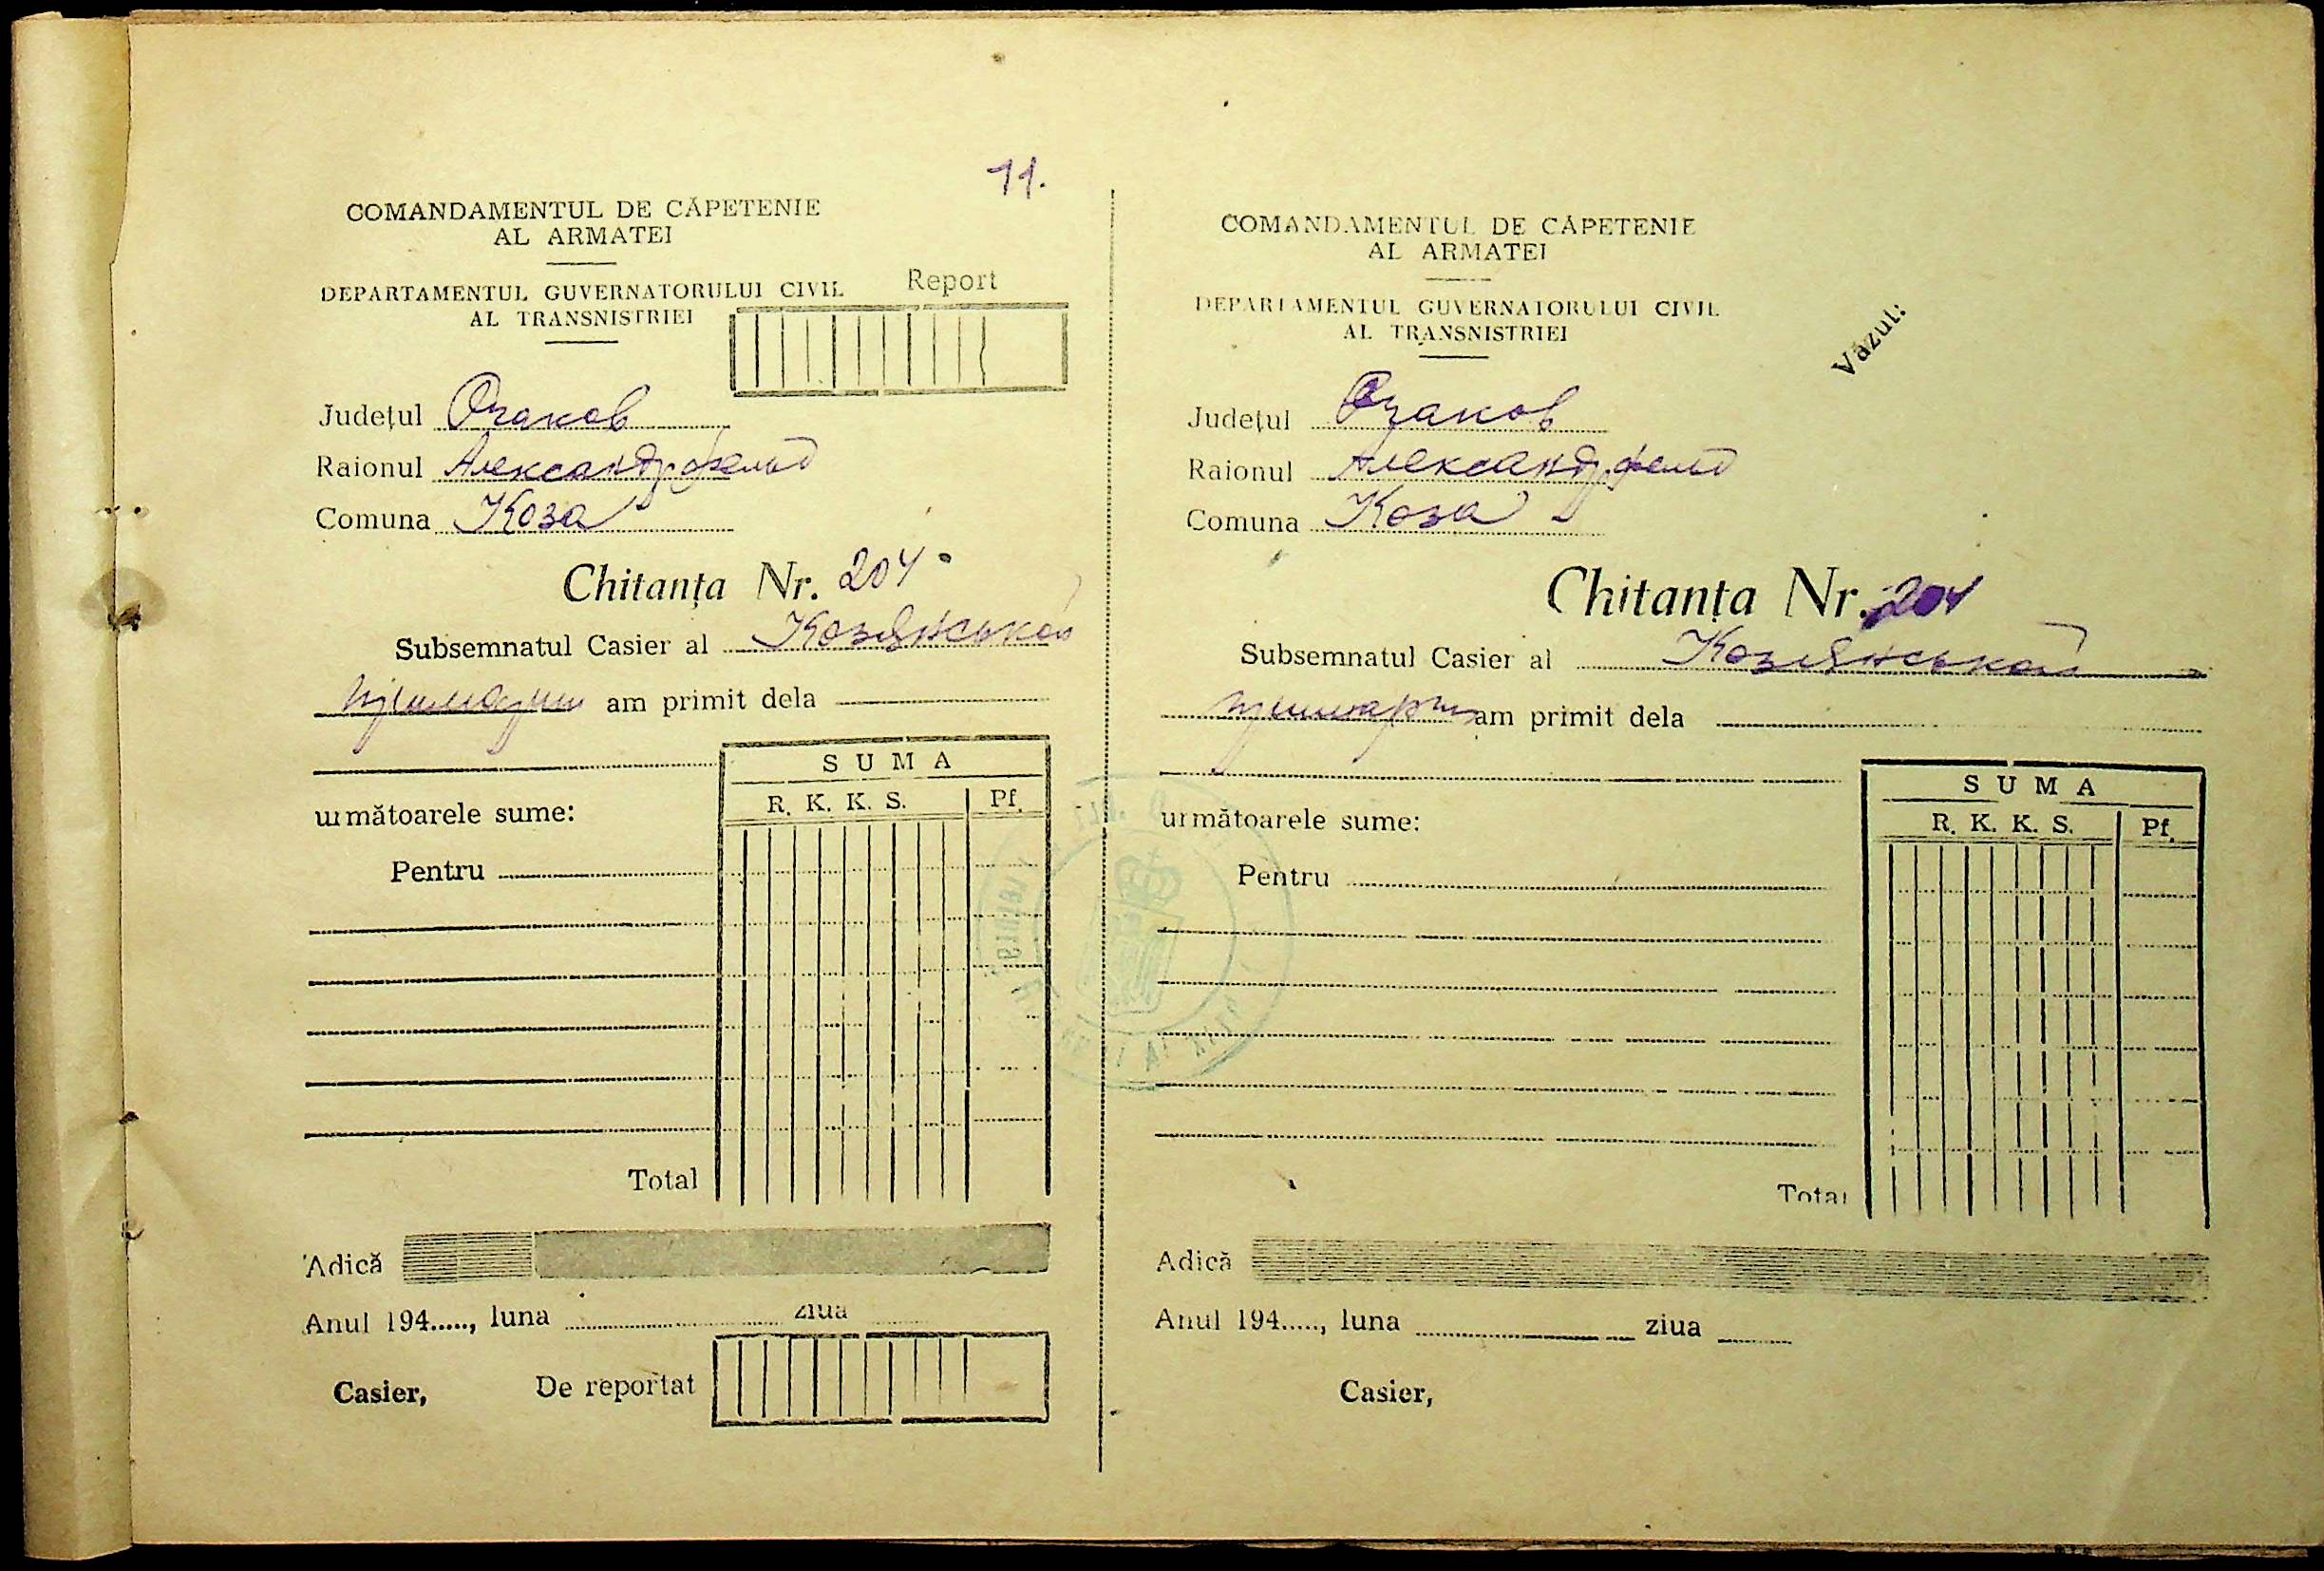 11.
COMANDAMENTUL DE CĂPETENIE
AL ARMATEI
DEPARTAMENTUL GUVERNATORULUI CIVIL
AL TRANSNISTRIEI
Report
Județul Очаков
Raionul Александрфельд
Comuna Коза
Chitanța Nr. 204
Subsemnatul Casier al
am primit dela
SUMA
R. K. K. S. Pf.
următoarele sume:
Pentru
Total
Adică
Anul 194....., luna ziua
Casier, De reportat
COMANDAMENTUL DE CĂPETENIE
AL ARMATEI
DEPARTAMENTUL GUVERNATORULUI CIVIL
AL TRANSNISTRIEI
Văzut:
Județul Очаков
Raionul Александрфельд
Comuna Коза
Chitanța Nr. 204
Subsemnatul Casier al
am primit dela
SUMA
R. K. K. S. Pf.
următoarele sume:
Pentru
Total
Adică
Anul 194....., luna ziua
Casier,